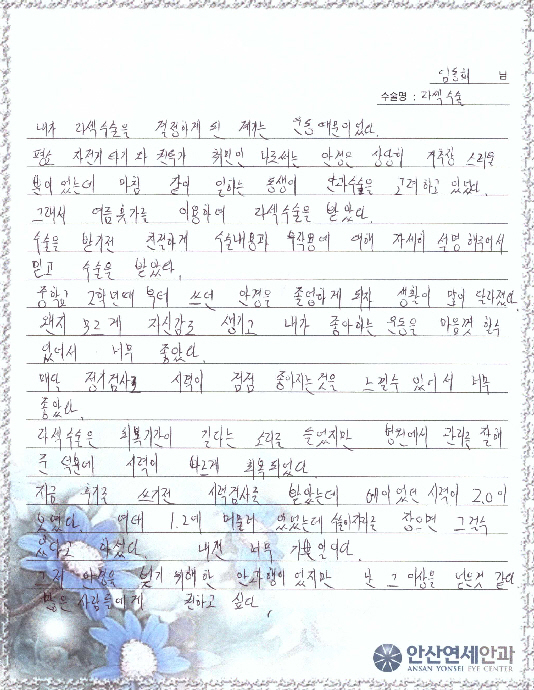 임동희 님
수술명 : 라섹수술
내가 라섹수술을 결정하게 된 계기는 운동때문이었다.
평소 자전거타기와 취미인 나로써는 안경은 상당히 거추장 스러운
있는데 마침 같이 일하는 동생이 안과수술을 고려하고 있었다.
그래서 여름휴가를 이용하여 라섹수술을 받았다.
수술을 받기전 친절하게 수술내용과 부작용에 대해 자세히 설명해주어서
믿고 수술을 받았다.
중학교 2학년때 부터 쓰던 안경을 졸업하게 되자 생활이 많이 달라졌다.
왠지 모르게 자신감도 생기고 내가 좋아하는 운동을 마음껏 할수
있어서 너무 좋았다.
매달 정기검사로 시력이 점점 좋아지는것을 느낄수 있어서 너무
좋았다.
라섹수술은 회복기간이 길다는 소리를 들었지만 병원에서 관리를 잘해
준 덕분에 시력이 빠르게 회복되었다.
지금 후기를 쓰기전 시력검사를 받았는데 시력이 2.0이
나왔다. 1.2에 머물러 있었는데
있다고 하셨다. 너무 기쁜일이다.
그저 안경을 벗기 위해 한 안과행이었지만 난 그 이상을 얻은것 같다
많은 사람들에게 권하고 싶다.
안산연세안과
ANSAN YONSEI EYE CENTER